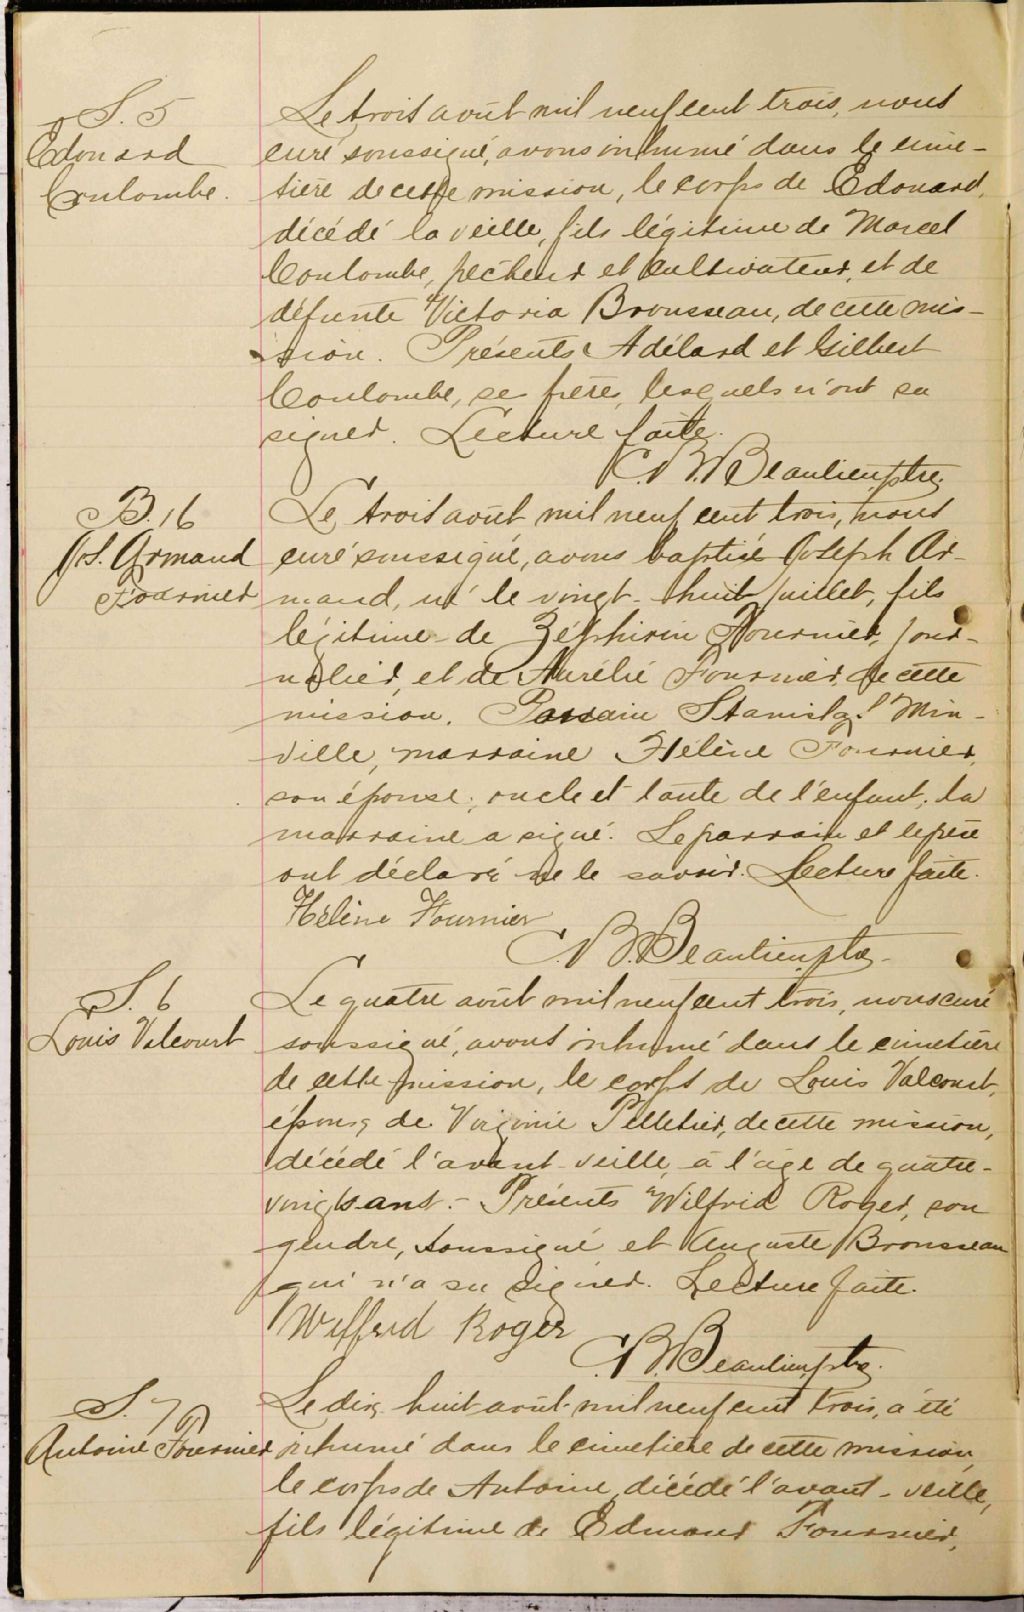 S. 5
Edouard
Coulombe.
Le trois août mil neuf cent trois, nous
curé soussigné, avons inhumé dans le cime-
tière de cette mission, le corps de Edouard,
décédé la veille, fils légitime de Marcel
Coulombe, pêcheur et cultivateur, et de
défunte Victoria Brousseau, de cette mis-
sion. Présents Adélard et Gilbert
Coulombe, ses frères, lesquels n'ont su
signer. Lecture faite.
C. B. Beaulieu, ptre.
B. 16
Jos. Armand
Fournier
Le trois août mil neuf cent trois, nous
curé soussigné, avons baptisé Joseph Ar-
mand, né le vingt-huit juillet, fils
légitime de Zéphirin Fournier, jour-
nalier, et de Aurélie Fournier, de cette
mission. Parrain Stanislas Min-
ville, marraine Hélène Fournier,
son épouse, oncle et tante de l'enfant; la
marraine a signé. Le parrain et le père
ont déclaré ne le savoir. Lecture faite.
Hélène Fournier
C. B. Beaulieu, ptre
S. 6
Louis Valcourt
Le quatre août mil neuf cent trois, nous curé
soussigné, avons inhumé dans le cimetière
de cette mission, le corps de Louis Valcourt,
époux de Virginie Pelletier, de cette mission,
décédé l'avant-veille, à l'âge de quatre-
vingts ans. - Présents Wilfrid Roger, son
gendre, soussigné et Auguste Brousseau
qui n'a su signer. Lecture faite.
Wilfrid Roger
C. B. Beaulieu, ptre.
S. 7
Antoine Fournier
Le dix-huit août mil neuf cent trois, a été
inhumé dans le cimetière de cette mission,
le corps de Antoine, décédé l'avant-veille,
fils légitime de Edmond Fournier,